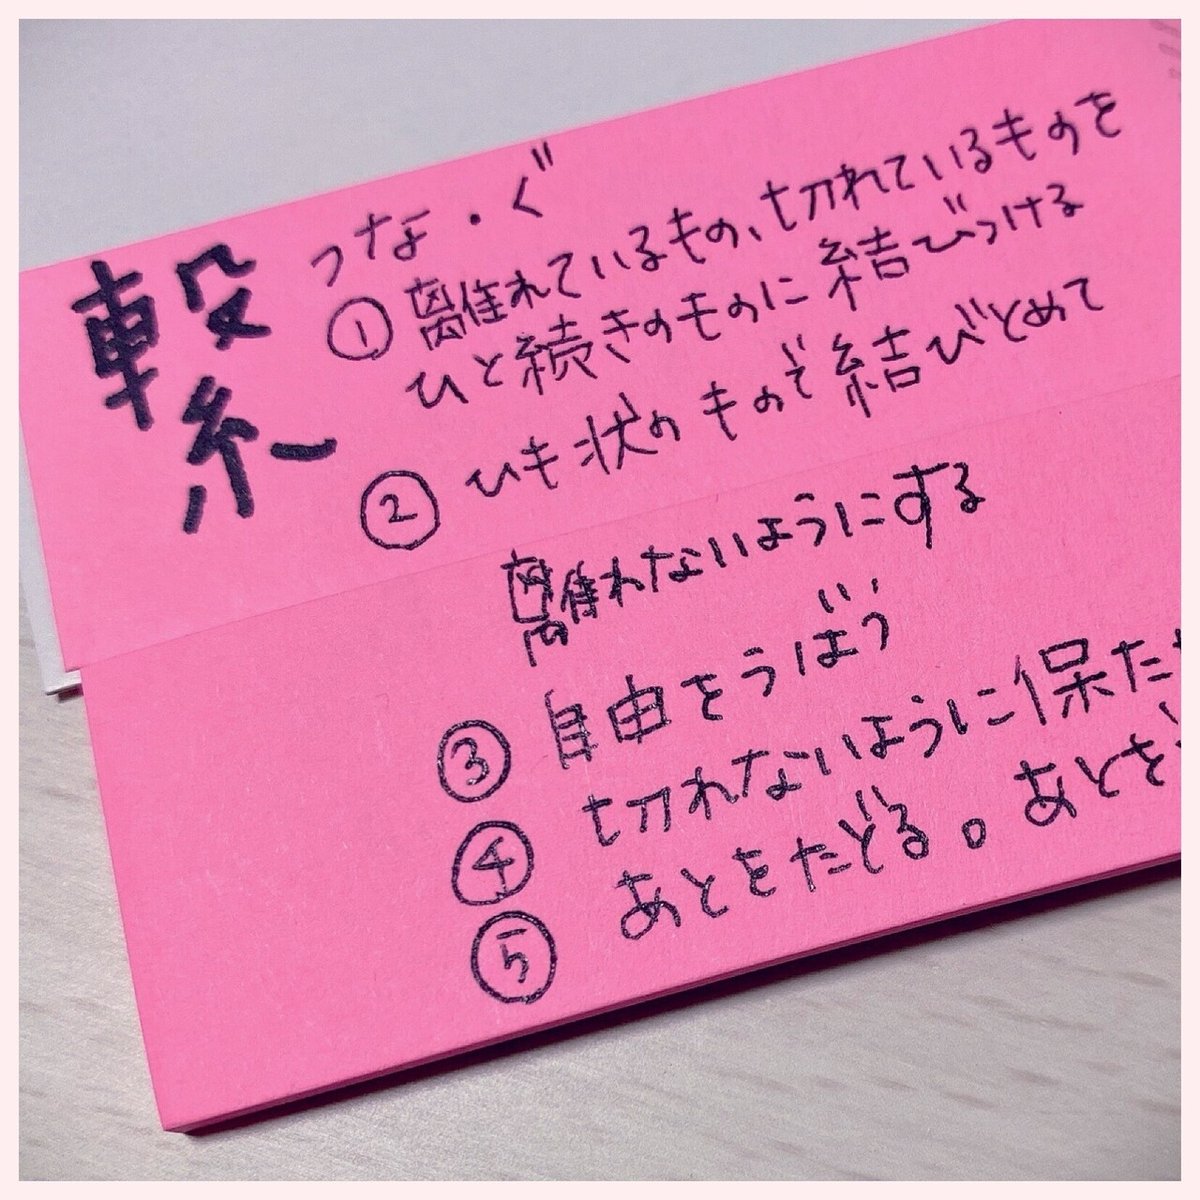 繋 つな・ぐ
① 離れているもの、切れているものを
ひと続きのものに結びつける
② ひも状のもので結びとめて
離れないようにする
③ 自由をうばう
④ 切れないように保た
⑤ あとをたどる。あとを